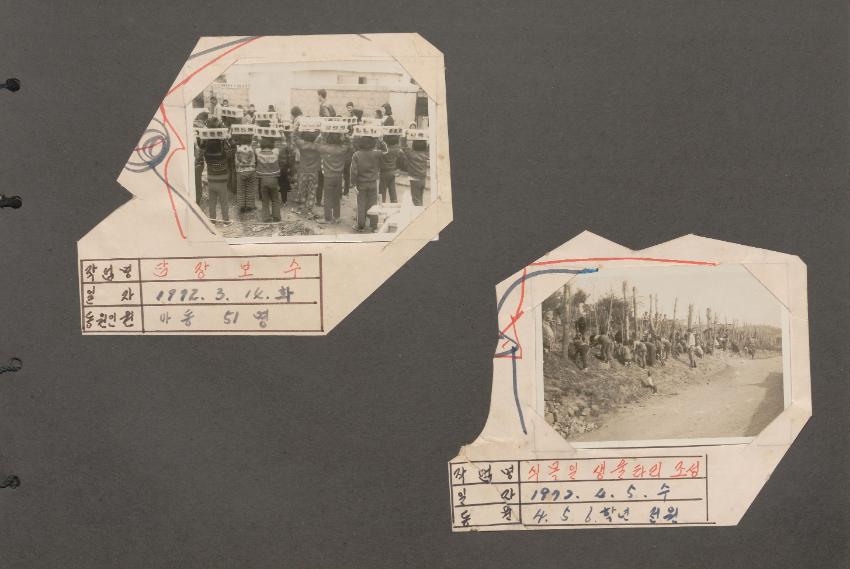 작업명 담 장 보 수
일 자 1972. 3. 14. 화
동원인원 아 동 51 명
작업명 식목일 생울타리 조성
일 자 1972. 4. 5. 수
동 원 4. 5 6. 학년 전원